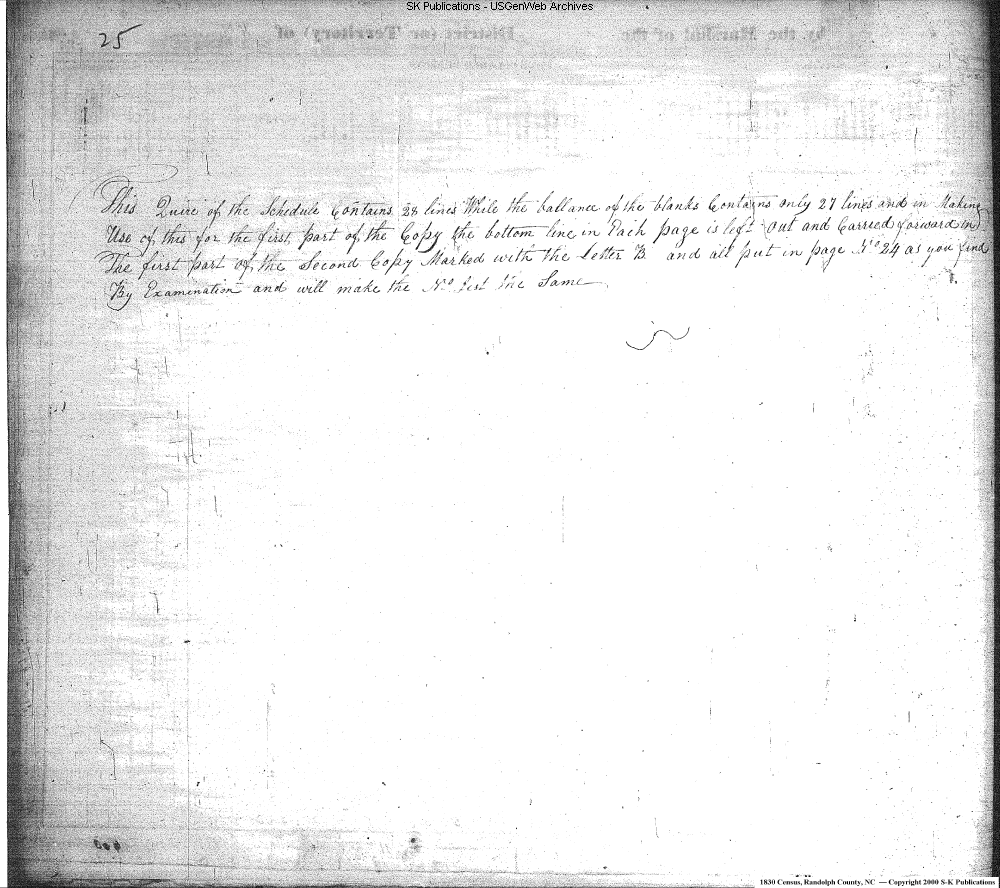 SK Publications - USGenWeb Archives
25
This Quire of the Schedule Contains 28 lines While the ballance of the blanks Contagns only 27 lines and in Making
Use of this for the first part of the Copy the bottom line in Each page is left out and Carried forward in
The first part of the Second Copy Marked with the Letter B and all put in page No 24 as you find
By Examination and will make the No the Same
1830 Census, Randolph County, NC — Copyright 2000 S-K Publications